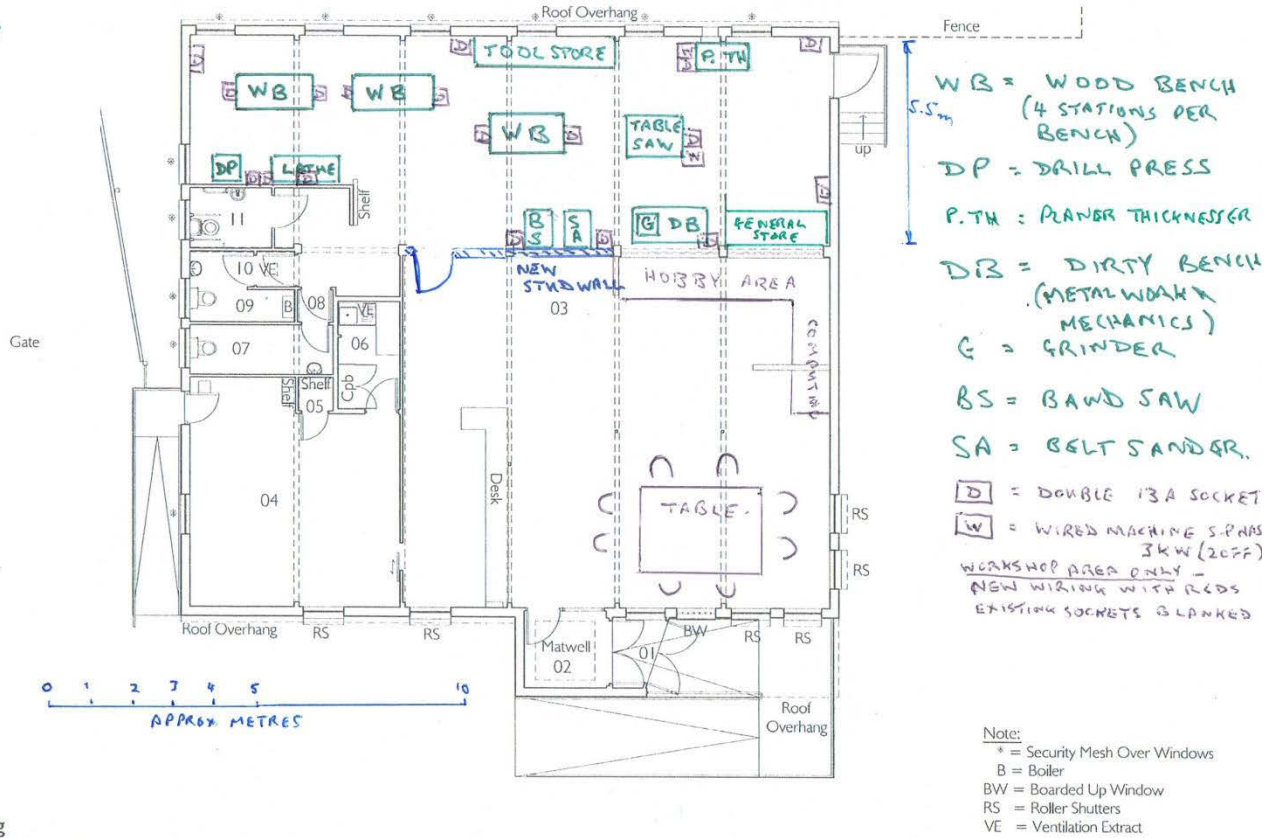 Roof Overhang
Fence
D
D
TOOL STORE
D
D
P. TH
D
D WB D
D WB G
D WB D
TABLE SAW
D
W
5.5m
up
DP
D
D
LATHE
D
Shelf
11
B S
S A
D
D
G DB
D
GENERAL STORE
D
NEW STUD WALL
HOBBY AREA
COMPUTING
03
10 VE
09
B
08
VE
06
07
Cpb
Shelf
05
Shelf
04
Desk
TABLE.
Gate
RS
RS
Roof Overhang
RS
RS
BW
RS
RS
Matwell
02
01
Roof
Overhang
0 1 2 3 4 5 10
APPROX METRES
WB = WOOD BENCH
(4 STATIONS PER
BENCH)
DP = DRILL PRESS
P.TH : PLANER THICKNESSER
DB = DIRTY BENCH
(METALWORK &
MECHANICS)
G = GRINDER
BS = BAND SAW
SA = BELT SANDER.
D = DOUBLE 13A SOCKET
W = WIRED MACHINE S.PHAS
3KW (2OFF)
WORKSHOP AREA ONLY -
NEW WIRING WITH RCDS
EXISTING SOCKETS BLANKED
Note:
* = Security Mesh Over Windows
B = Boiler
BW = Boarded Up Window
RS = Roller Shutters
VE = Ventilation Extract
g